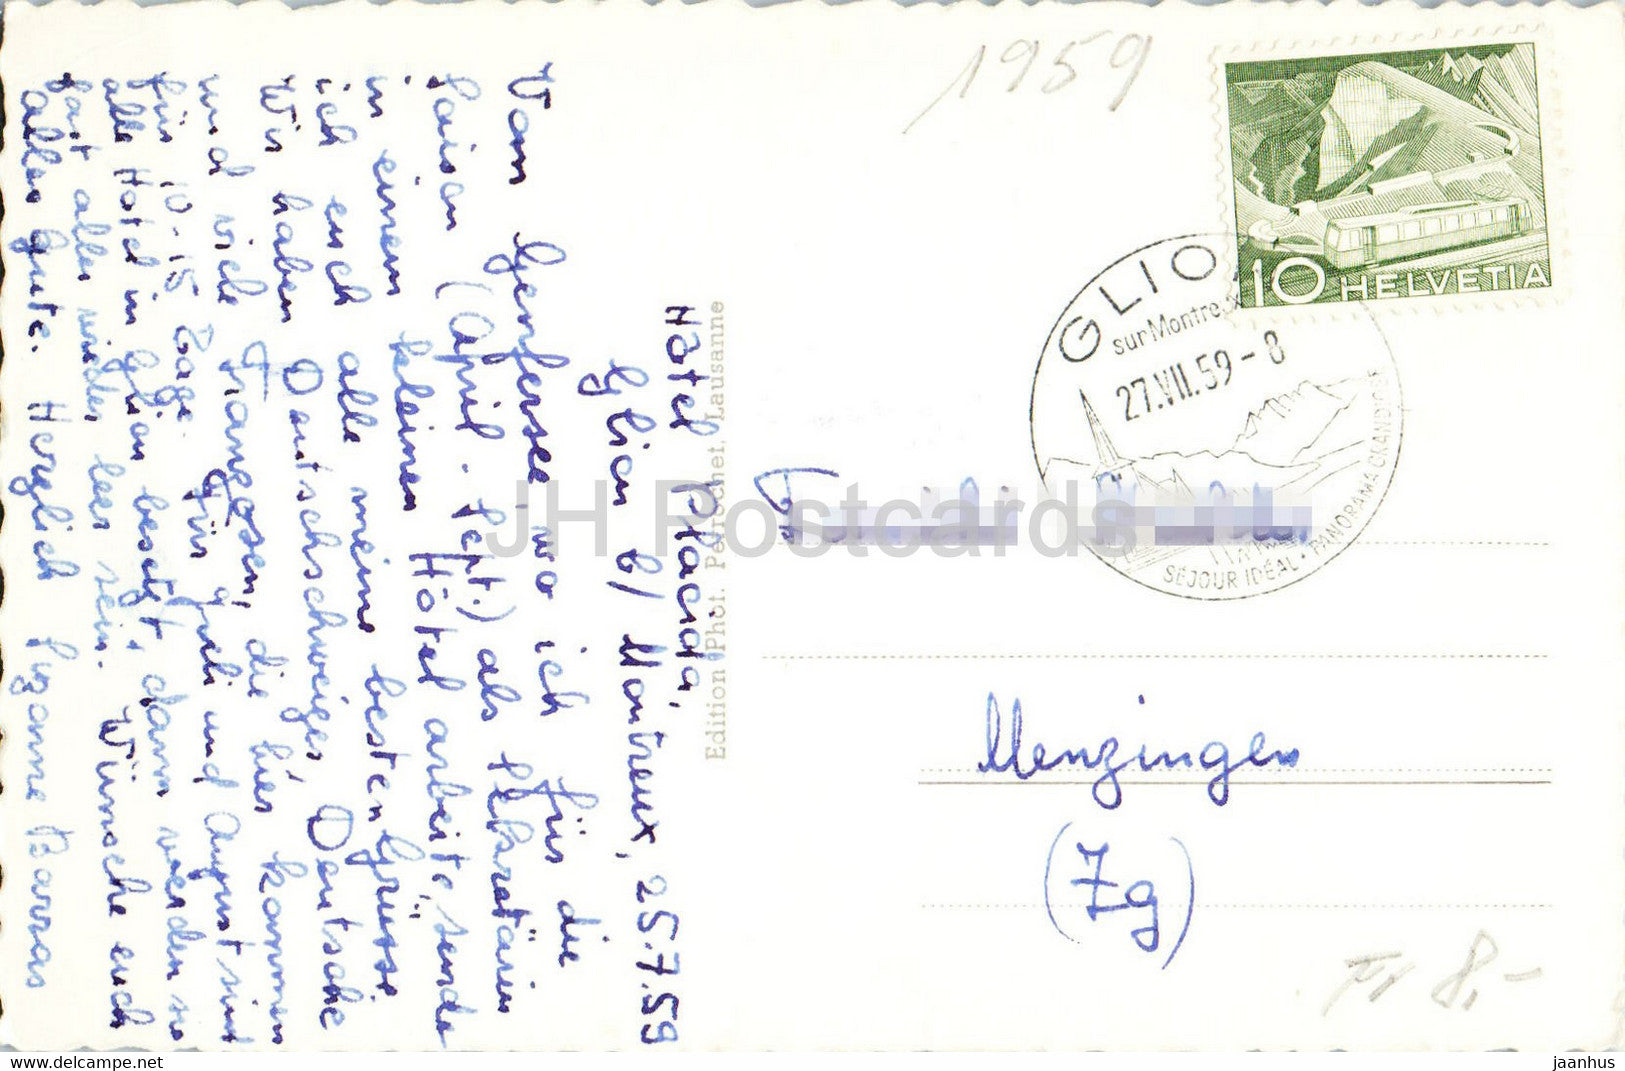 Hôtel Placida,
Glion b/ Montreux, 25.7.59
Vom Genfersee, wo ich für die
Saison (April - Sept.) als Sekretärin
in einem kleinen Hôtel arbeite, sende
ich euch alle meine besten Grüsse
Wir haben Deutschschweizer, Deutsche
und viele Franzosen, die hier kommen
für 10-15 Tage. Für Juli und August sind
alle Hôtel in Glion besetzt, dann werden sie
fast alle wieder leer sein. Wünsche euch
alles gute. Herzlich Suzanne Barras
Edition Phot. Perrochet, Lausanne
1959
10 HELVETIA
GLION
sur Montreux
27.VII.59-8
SÉJOUR IDÉAL • PANORAMA GRANDIOSE
Menzingen
(Zg)
Fr 8,-
JH Postcards
www.delcampe.net
jaanhus